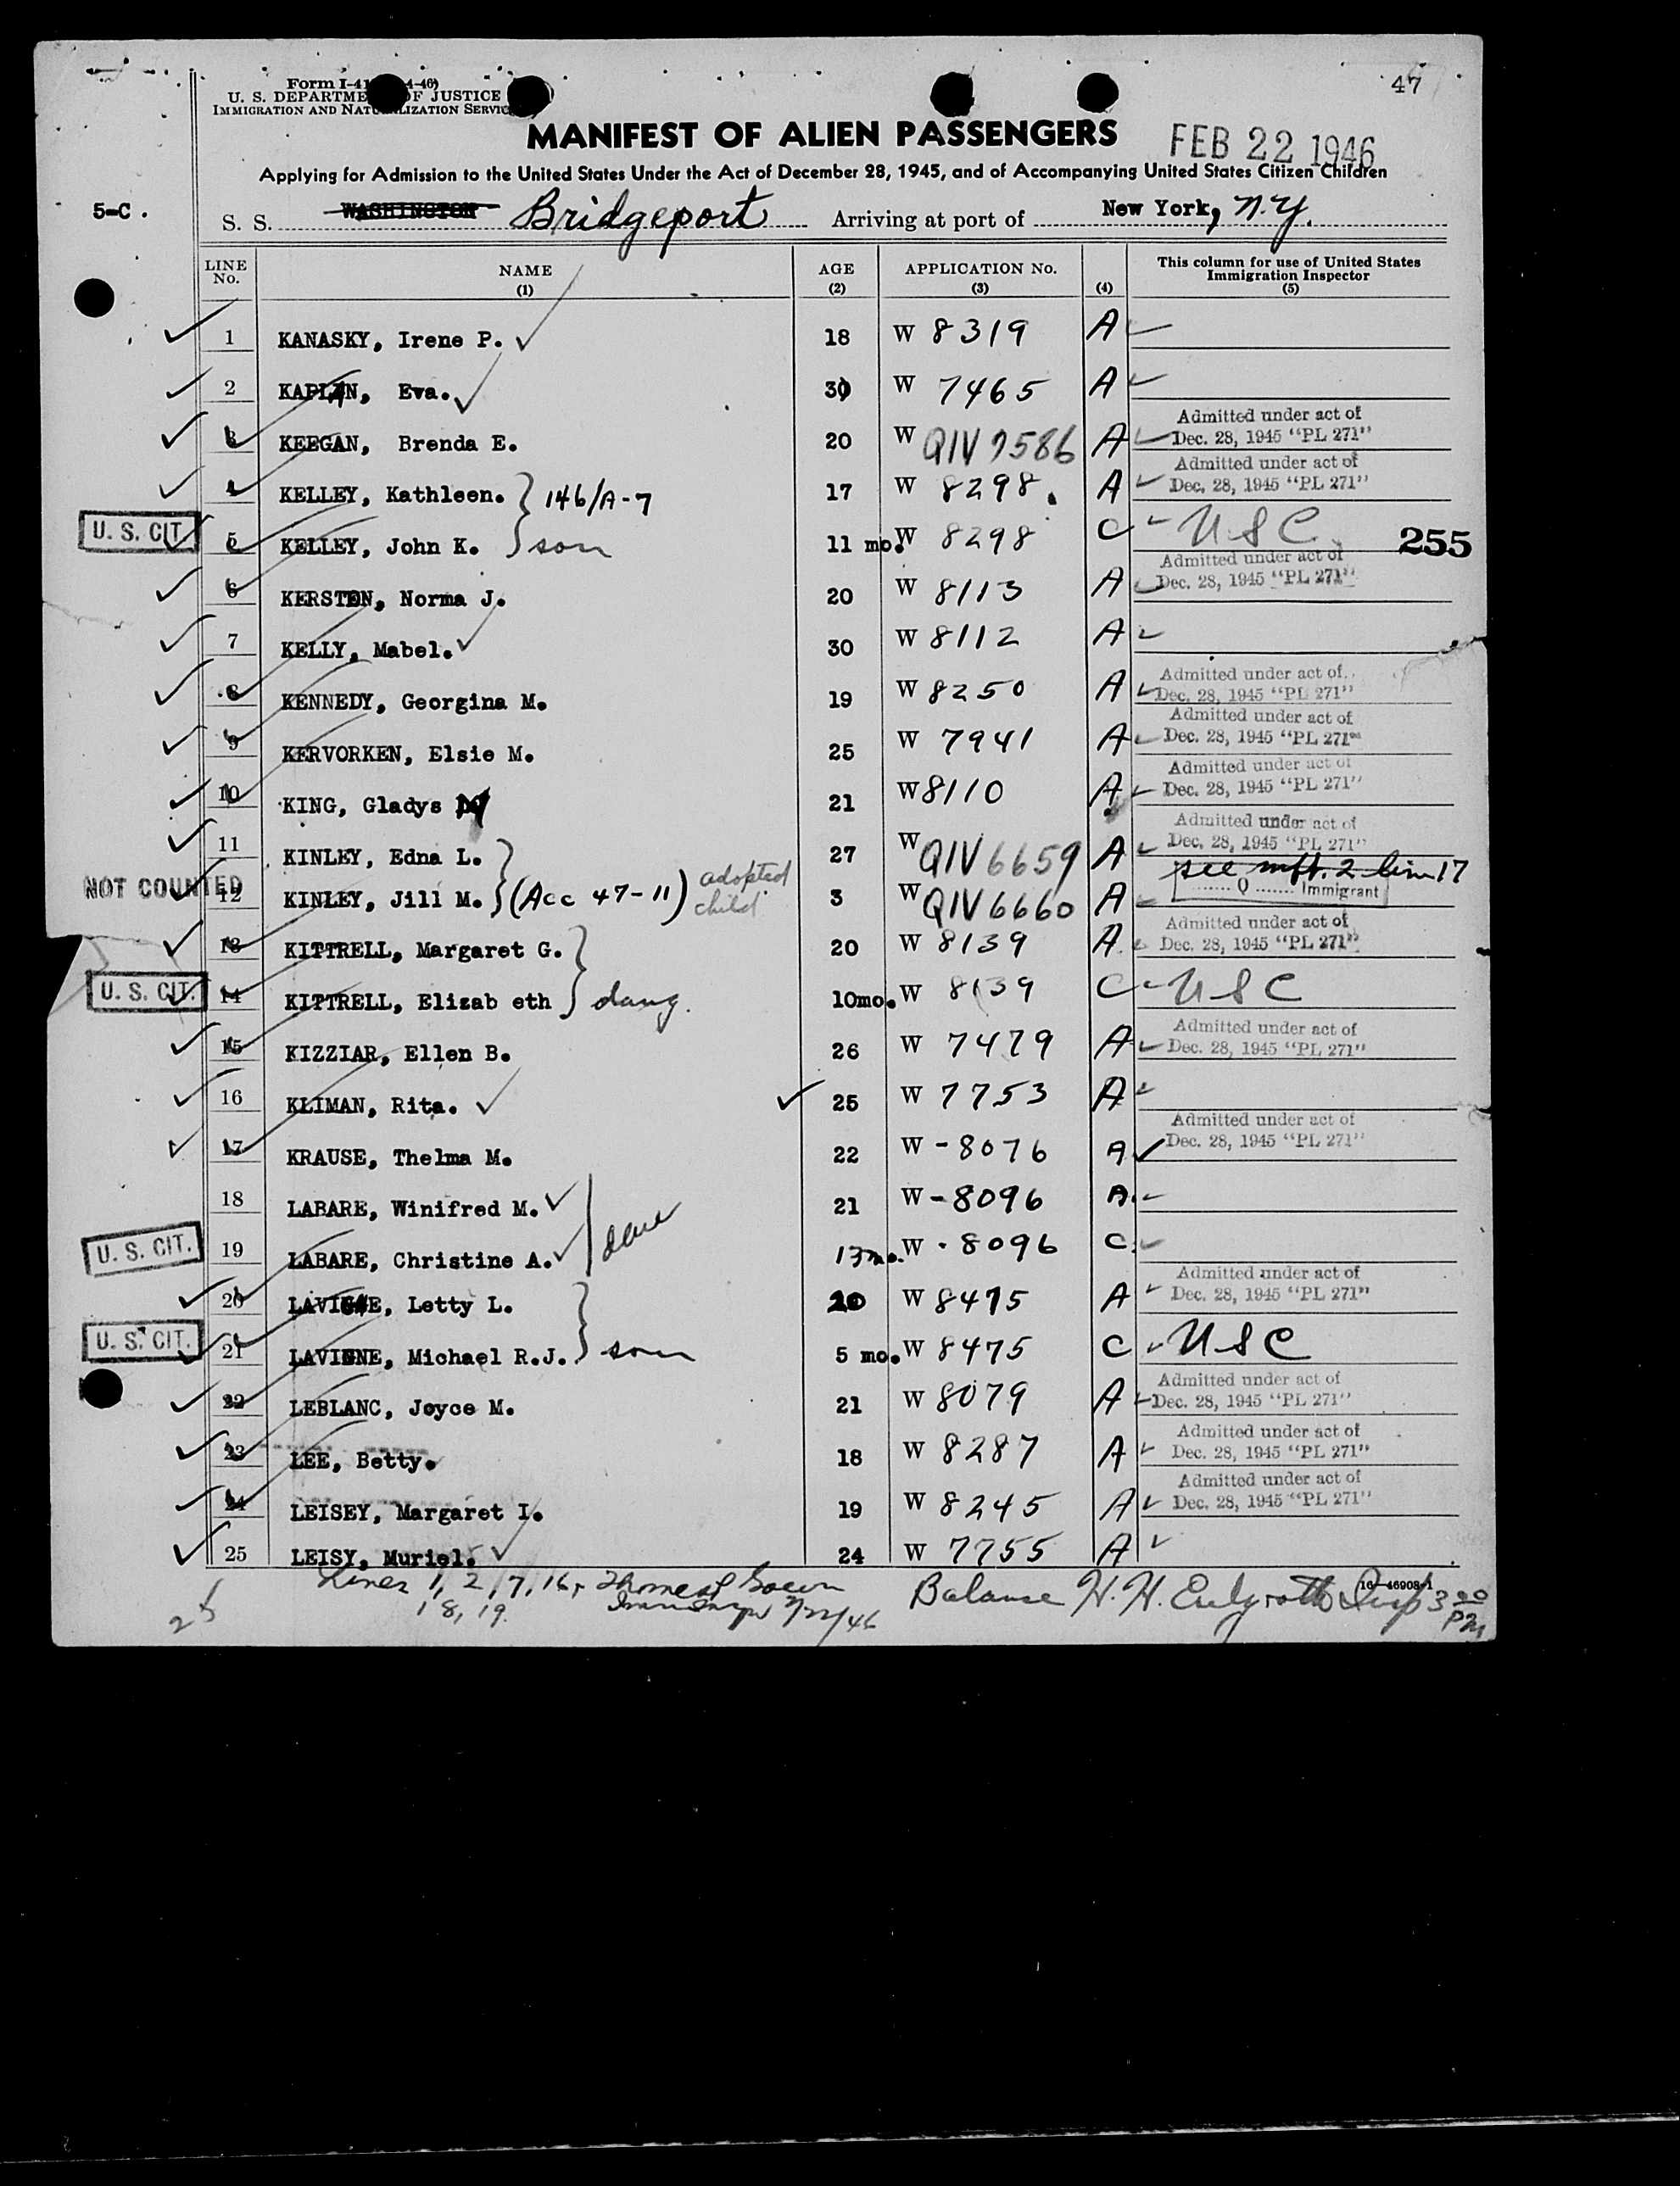 47
Form I-41
U. S. DEPARTMENT OF JUSTICE
IMMIGRATION AND NATURALIZATION SERVICE
MANIFEST OF ALIEN PASSENGERS
FEB 22 1946
Applying for Admission to the United States Under the Act of December 28, 1945, and of Accompanying United States Citizen Children
5-C.
S. S. WASHINGTON Bridgeport Arriving at port of New York, N.Y.
LINE No. NAME (1) AGE (2) APPLICATION No. (3) (4) This column for use of United States Immigration Inspector (5)
1 KANASKY, Irene P. 18 W 8319 A
2 KAPLAN, Eva. 30 W 7465 A
3 KEEGAN, Brenda E. 20 W QIV 7586 A Admitted under act of Dec. 28, 1945 "PL 271"
4 KELLEY, Kathleen. 146/A-7 17 W 8298. A Admitted under act of Dec. 28, 1945 "PL 271"
U. S. CIT. 5 KELLEY, John K. son 11 mo. W 8298 C USC 255
6 KERSTEN, Norma J. 20 W 8113 A Admitted under act of Dec. 28, 1945 "PL 271"
7 KELLY, Mabel. 30 W 8112 A
8 KENNEDY, Georgina M. 19 W 8250 A Admitted under act of Dec. 28, 1945 "PL 271"
9 KERVORKEN, Elsie M. 25 W 7941 A Admitted under act of Dec. 28, 1945 "PL 271"
10 KING, Gladys 21 W 8110 A Admitted under act of Dec. 28, 1945 "PL 271"
11 KINLEY, Edna L. 27 W QIV 6659 A Admitted under act of Dec. 28, 1945 "PL 271"
NOT COUNTED 12 KINLEY, Jill M. (Acc 47-11) adopted child 3 W QIV 6660 A see mft. 2 line 17 Q Immigrant
13 KITTRELL, Margaret G. 20 W 8139 A Admitted under act of Dec. 28, 1945 "PL 271"
U. S. CIT. 14 KITTRELL, Elizab eth daug. 10mo. W 8139 C USC
15 KIZZIAR, Ellen B. 26 W 7479 A Admitted under act of Dec. 28, 1945 "PL 271"
16 KLIMAN, Rita. 25 W 7753 A
17 KRAUSE, Thelma M. 22 W - 8076 A Admitted under act of Dec. 28, 1945 "PL 271"
18 LABARE, Winifred M. 21 W - 8096 A.
U. S. CIT. 19 LABARE, Christine A. 13mo. W - 8096 C
20 LAVIGNE, Letty L. 20 W 8475 A Admitted under act of Dec. 28, 1945 "PL 271"
U. S. CIT. 21 LAVIGNE, Michael R.J. son 5 mo. W 8475 C USC
22 LEBLANC, Joyce M. 21 W 8079 A Admitted under act of Dec. 28, 1945 "PL 271"
23 LEE, Betty. 18 W 8287 A Admitted under act of Dec. 28, 1945 "PL 271"
24 LEISEY, Margaret I. 19 W 8245 A Admitted under act of Dec. 28, 1945 "PL 271"
25 LEISY, Muriel. 24 W 7755 A
25 Lines 1, 2, 7, 16, Thomas Balance H. H. 16-46908-1 3 00 PM
18, 19. 2/22/46